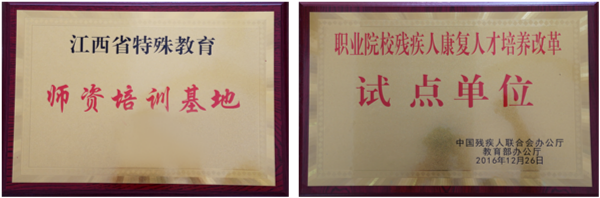 江西省特殊教育
师资培训基地
职业院校残疾人康复人才培养改革
试点单位
中国残疾人联合会办公厅
教育部办公厅
2016年12月26日